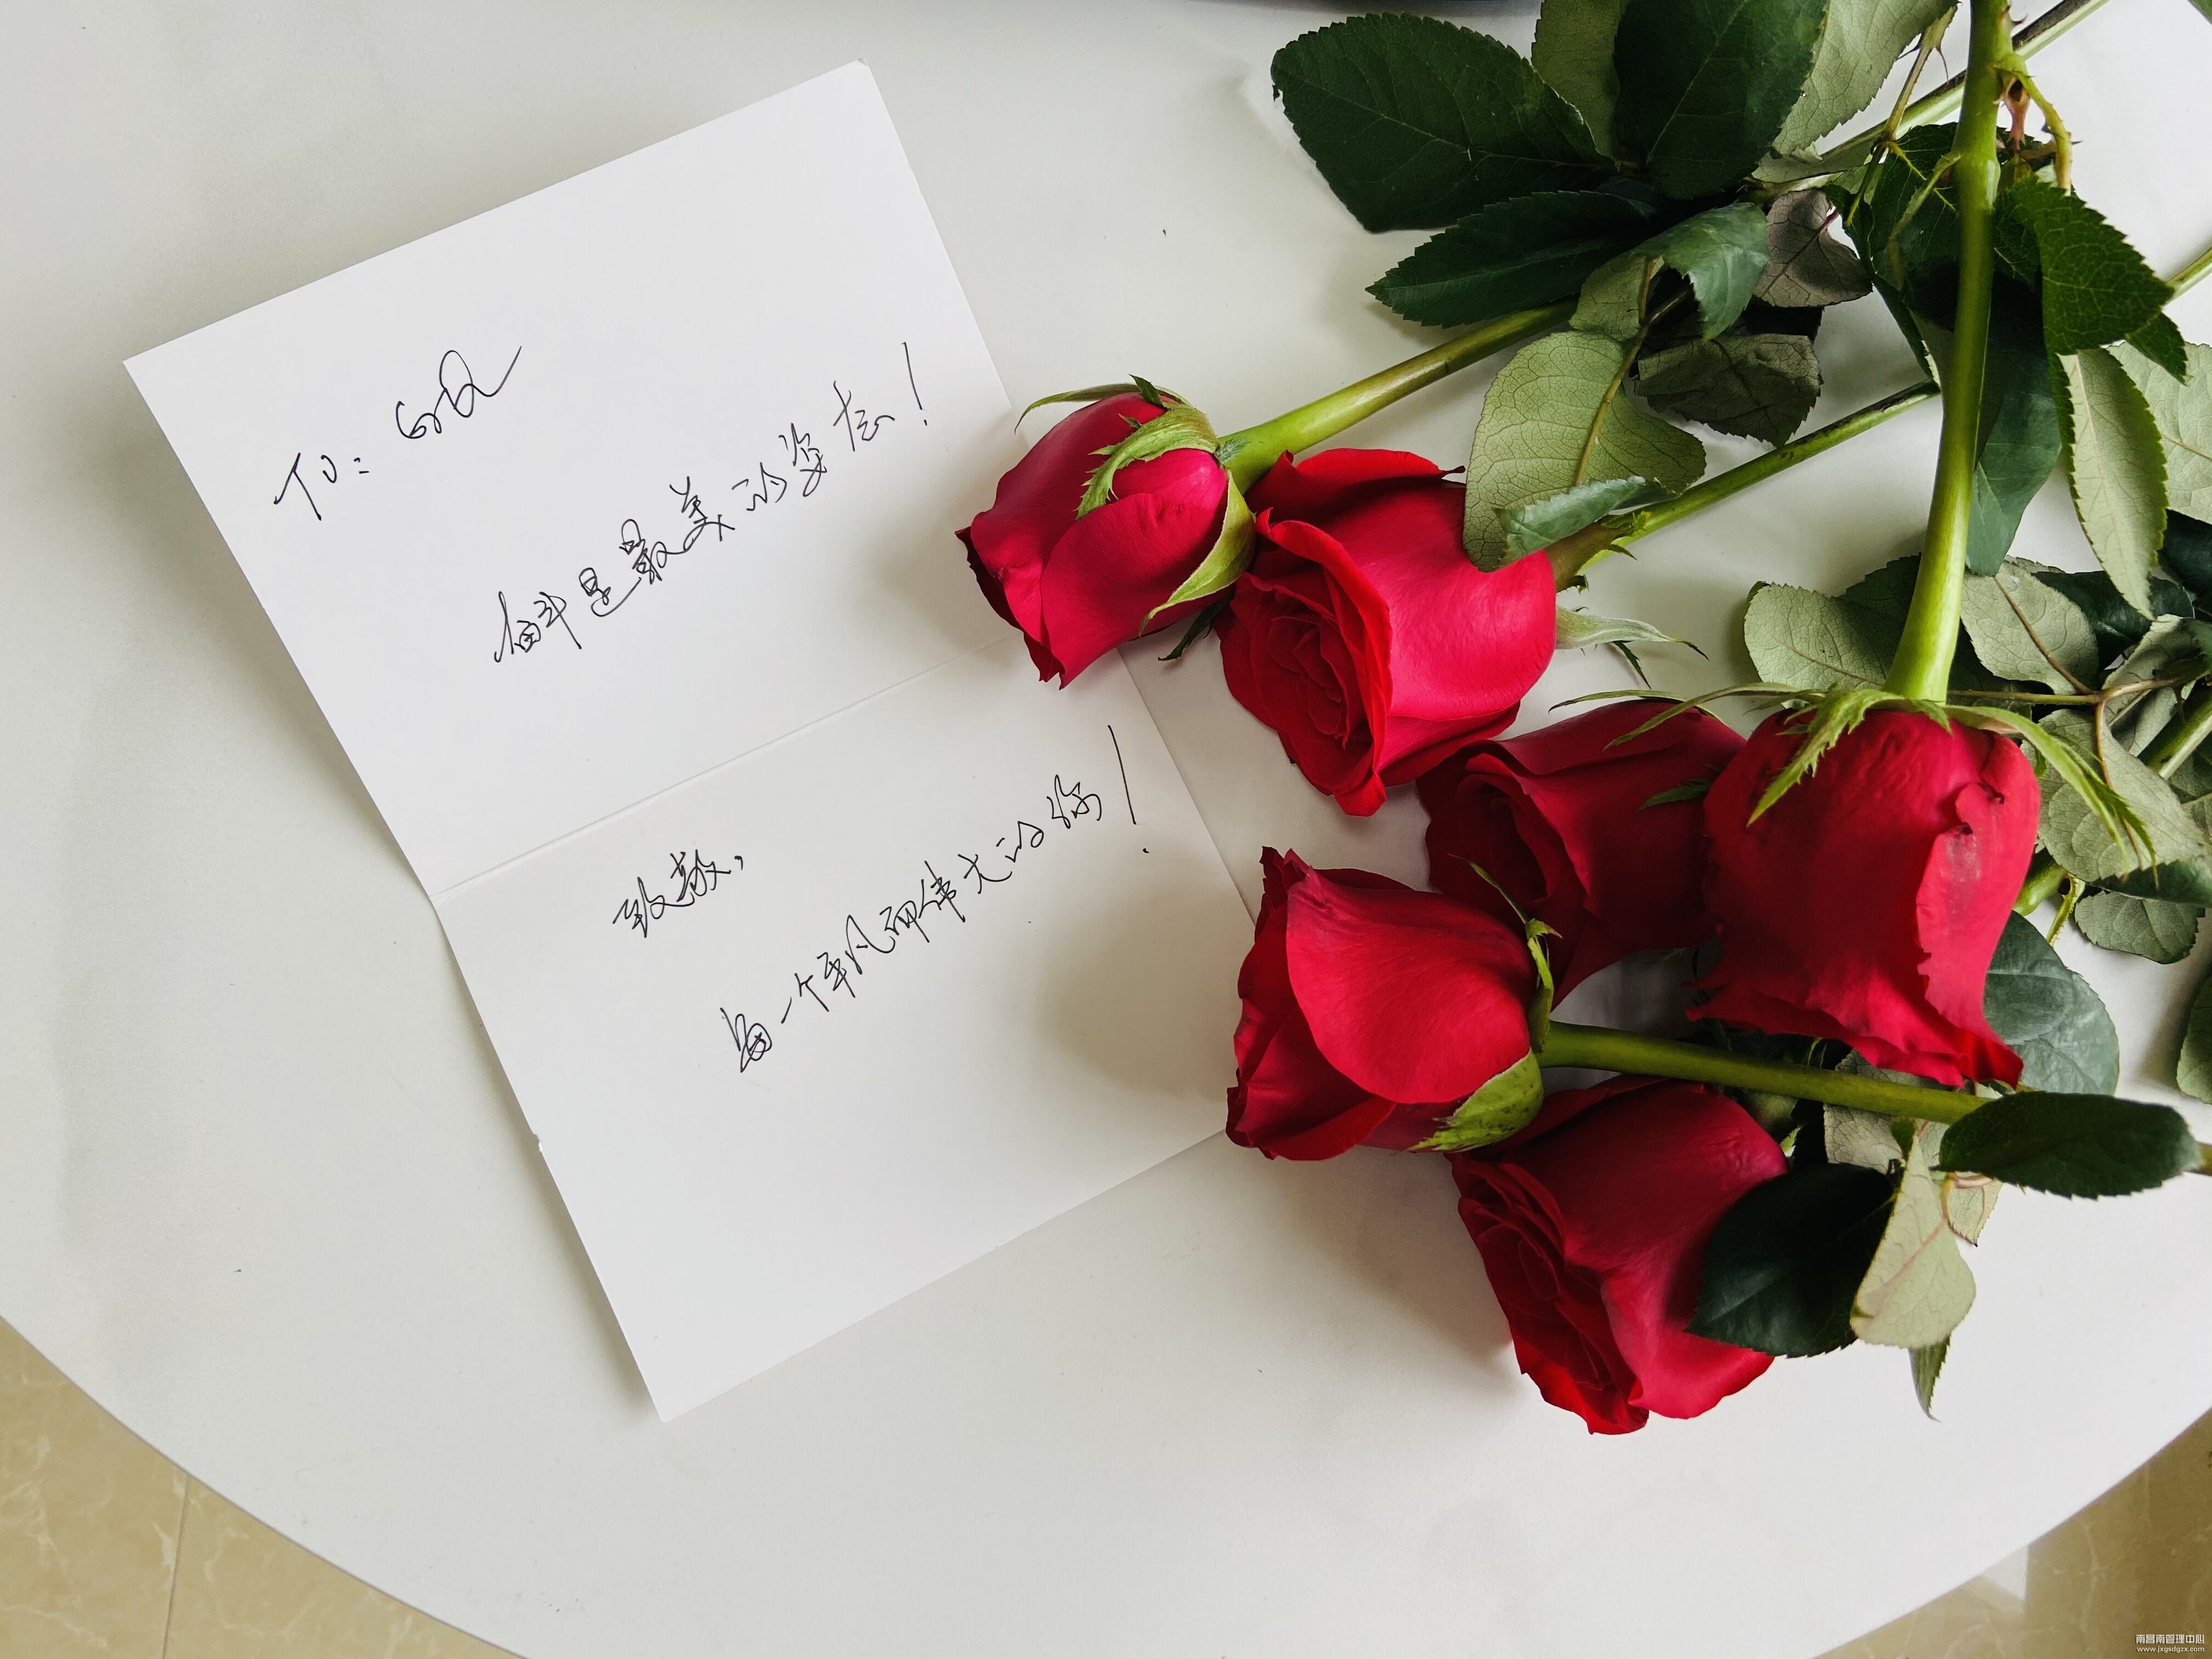 TO:
奋斗是最美的姿态！
致敬，
每一个平凡而伟大的你！
南昌南管理中心
www.jxgsdgzx.com